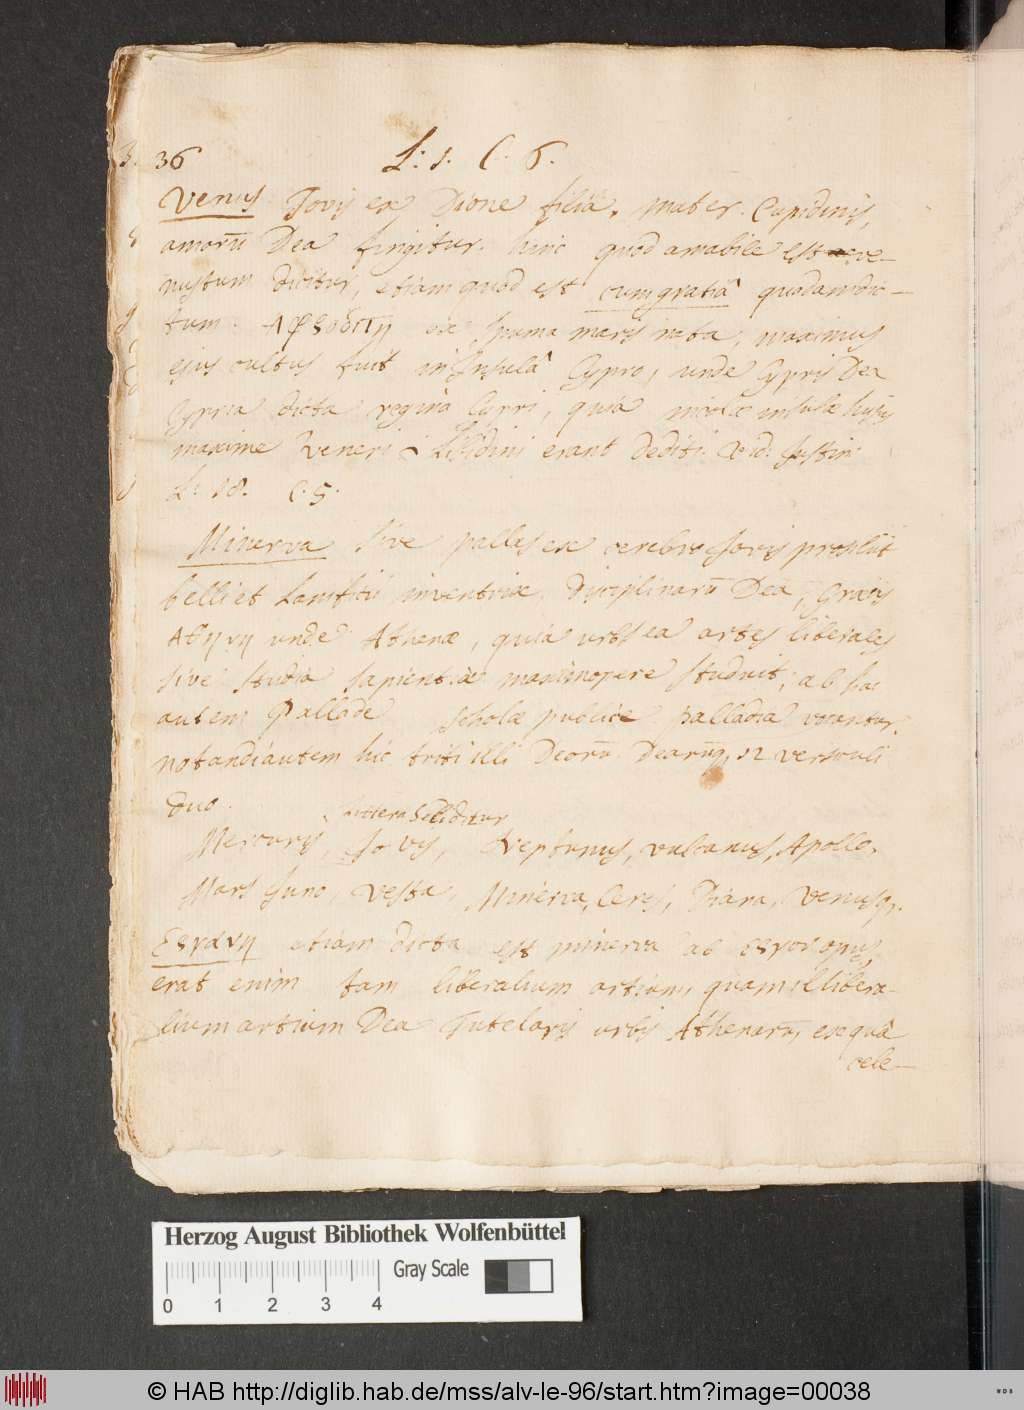 36 L: 1. C. 6.
Venus Jovis ex Dione filia, mater Cupidinis,
amorū Dea fingitur. hinc quod amabile est ve-
nustum dicitur, etiam quod est cum gratiâ quadam dic-
tum. Αφροδιτη ex spuma maris nata, maximus
ejus cultus fuit in Insulâ Cypro, unde Cypris Dea
Cypria dicta regina Cypri, quia incolæ insulæ hujus
maxime Veneri i Libidini erant dediti. vid: Justin:
L: 18. C. 5.
Minerva sive pallas ex cerebro Jovis prosiliit
belli et Lanificii inventrix, Disciplinarū Dea, Græcis
Αθηνη unde Athenæ, quia urbs ea artes liberales
sive studia sapientiæ maximopere studuit, ab hac
autem Pallade scholæ publice palladia vocantur.
notandi autem hic triti illi Deorū Dearūq, 12 versiculi
duo.
littera S eliditur
Mercuris, Jovis, Neptunus, vulcanus, Apollo,
Mars Juno, Vesta, Minerva, Ceres, Diana, Venusq,.
Εργανη etiam dicta est minerva ab εργον opus,
erat enim tam liberalium artium, quam illibera-
lium artium Dea Tutelaris urbis Athenarū, ex quâ
cele-
Herzog August Bibliothek Wolfenbüttel
Gray Scale
0 1 2 3 4
© HAB http://diglib.hab.de/mss/alv-le-96/start.htm?image=00038